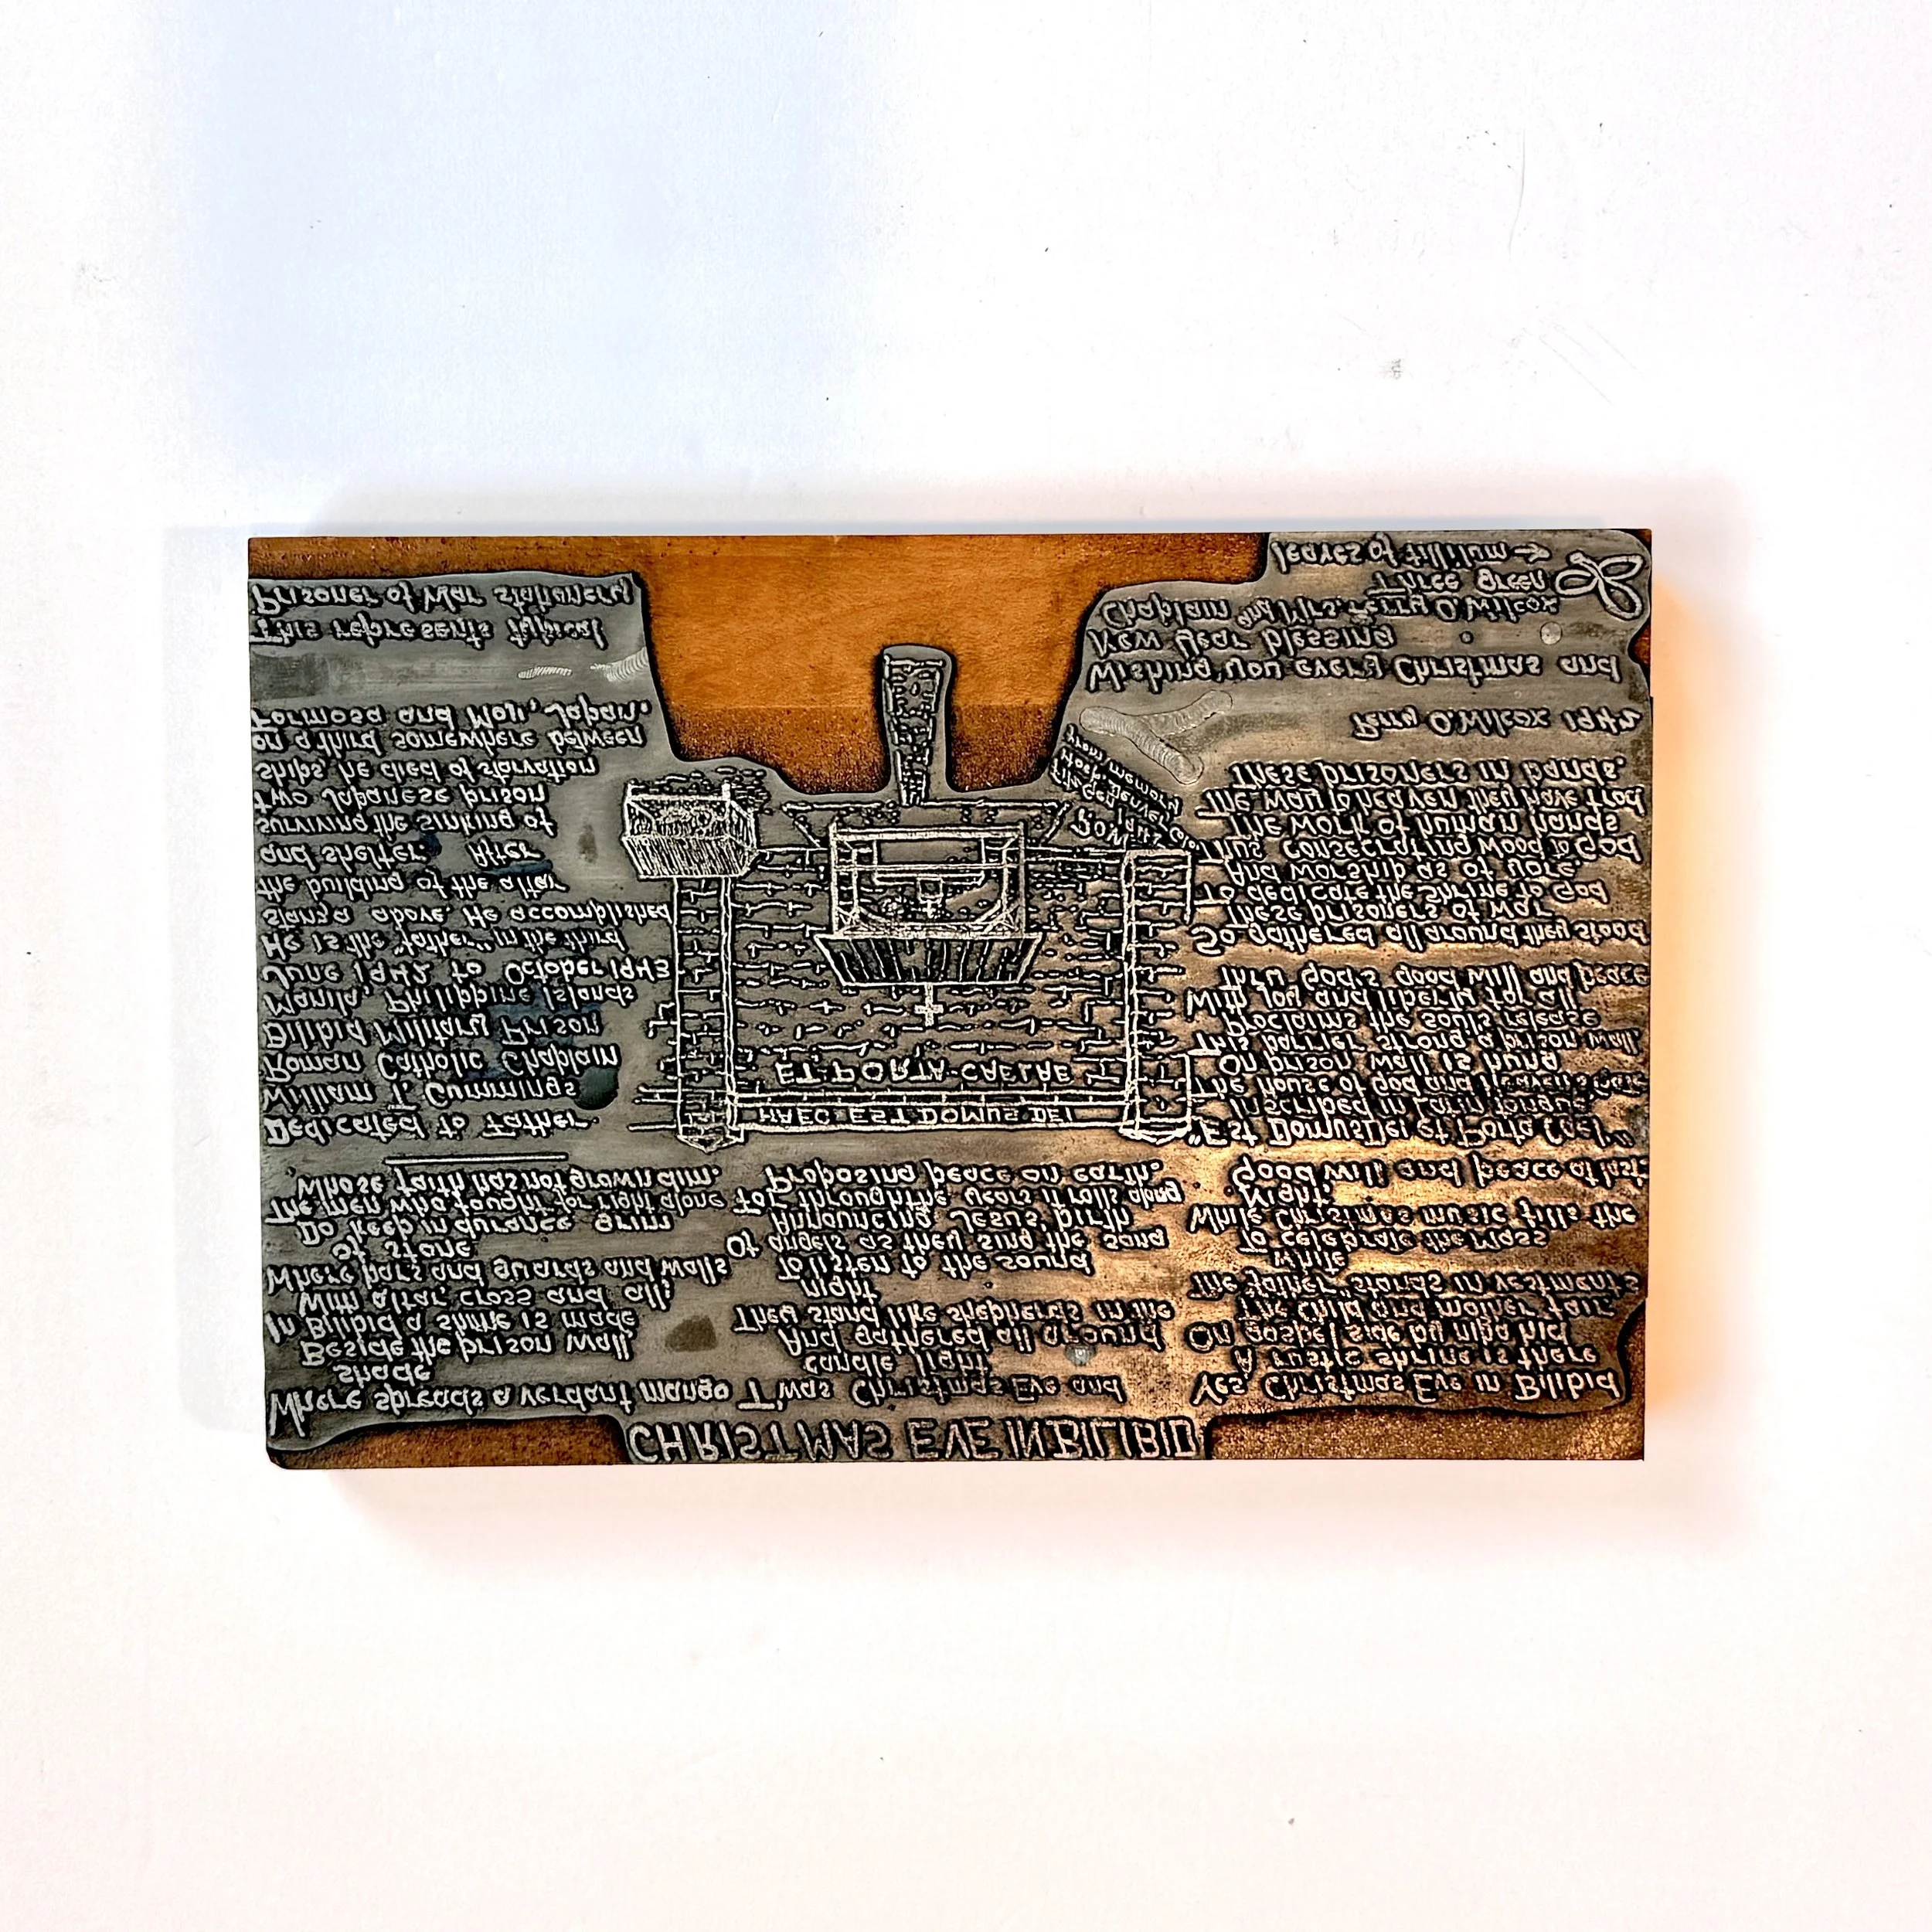 CHRISTMAS EVE IN BILIBID
Where spreads a verdant mango
shade
Beside the prison wall
In Bilibid a shrine is made
With altar, cross and all;
Where bars and guards and walls
of stone
Do keep in durance grim
The men who fought for right alone
Whose faith has not grown dim.
T'was Christmas Eve and
candle light
And gathered all around
They stand like shepherds in the
night
To listen to the sound
Of angels as they sing the song
Announcing Jesus' birth
For through the years it rolls along
Proposing peace on earth.
Yes Christmas Eve in Bilibid
A rustic shrine is there
On gospel side by nipa hid
The child and mother fair
The father stands in vestments
white
To celebrate the mass
While Christmas music fills the
night.
Good will and peace at last.
"Est Domus Dei et Porta Coel"
Inscribed in Latin tongue
The house of God and Heaven's Gate
On prison wall is hung
This barrier strong a prison wall,
Proclaims the soul's release
With joy and liberty for all
Thru God's good will and peace
So gathered all around they stood
These prisoners of war
To dedicate the Shrine to God
And worship as of yore
Thus consecrating wood to God
The work of human hands
The way to heaven they have trod
These prisoners in bands.
Perry O. Wilcox 1942
HAEC EST DOMUS DEI
ET PORTA CAELAE
Dedicated to Father
William T. Cummings
Roman Catholic Chaplain
Bilibid Military Prison
Manila, Philippine Islands
June 1942 to October 1943
He is the "father" in the third
stanza above. He accomplished
the building of the altar
and shelter. After
surviving the sinking of
two Japanese prison
ships he died of starvation
on a third somewhere between
Formosa and Moji, Japan.
This represents typical
Prisoner of War stationery
POW
from memory
Wishing you every Christmas and
New Year blessing
Chaplain and Mrs. Perry O. Wilcox
Three green
leaves of tillilum →